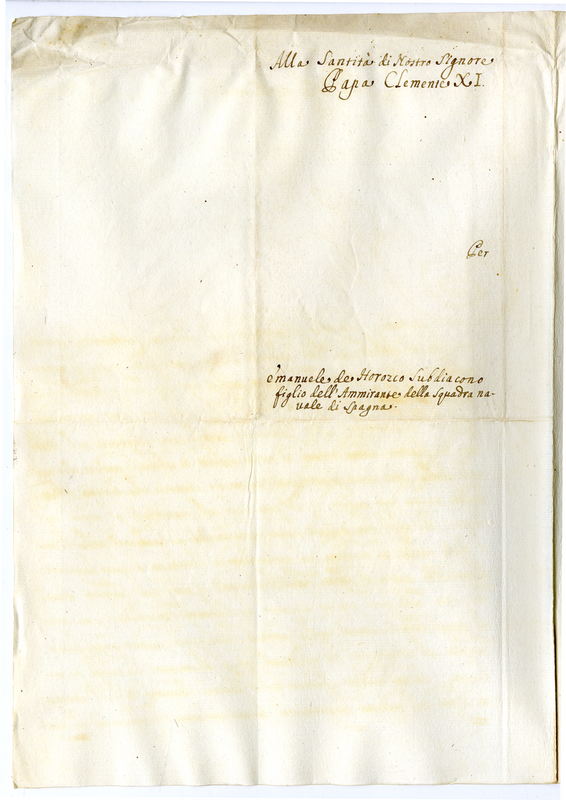 Alla Santità di Nostro Signore
Papa Clemente XI.
Per
Emanuele de Horozco Subdiacono
figlio dell'Ammirante della Squadra na-
uale di Spagna.